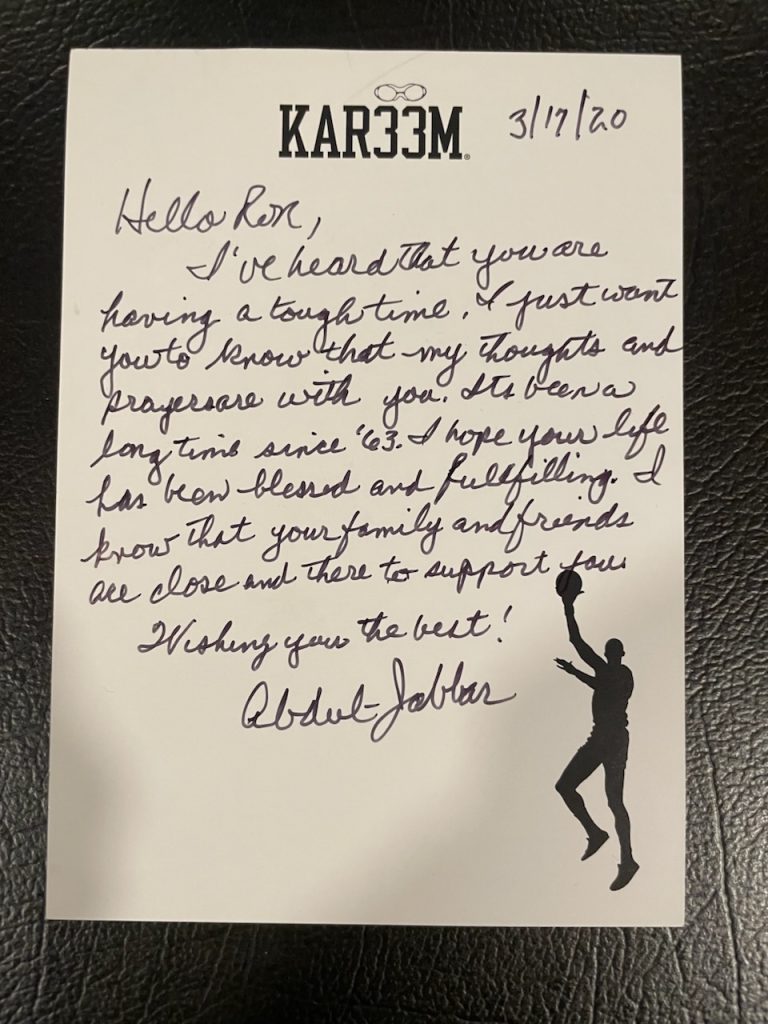 KAR33M®
3/17/20
Hello Ron,
I've heard that you are
having a tough time. I just want
you to know that my thoughts and
prayers are with you. Its been a
long time since '63. I hope your life
has been blessed and fullfilling. I
know that your family and friends
are close and there to support you.
Wishing you the best!
Abdul-Jabbar